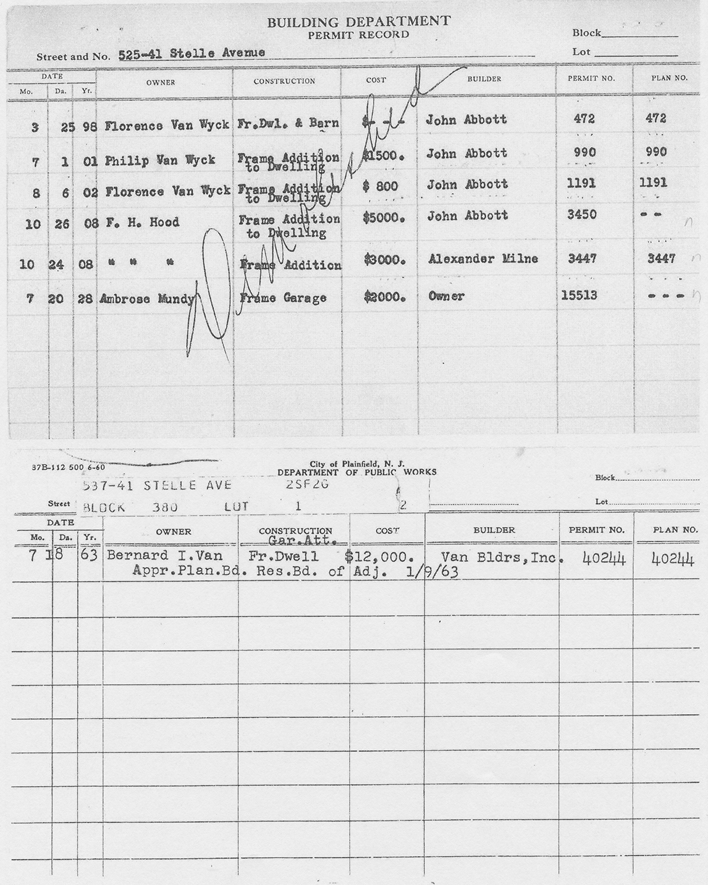 BUILDING DEPARTMENT
PERMIT RECORD
Block
Street and No. 525-41 Stelle Avenue Lot
DATE OWNER CONSTRUCTION COST BUILDER PERMIT NO. PLAN NO.
Mo. Da. Yr.
3 25 98 Florence Van Wyck Fr.Dwl. & Barn $- - - John Abbott 472 472
7 1 01 Philip Van Wyck Frame Addition $1500. John Abbott 990 990
to Dwelling
8 6 02 Florence Van Wyck Frame Addition $ 800 John Abbott 1191 1191
to Dwelling
10 26 08 F. H. Hood Frame Addition $5000. John Abbott 3450 - -
to Dwelling n
10 24 08 " " " Frame Addition $3000. Alexander Milne 3447 3447 n
7 20 28 Ambrose Mundy Frame Garage $2000. Owner 15513 - - - n
37B-112 500 6-60 City of Plainfield, N. J.
DEPARTMENT OF PUBLIC WORKS
537-41 STELLE AVE 2SF2G Block
Street BLOCK 380 LOT 1 2 Lot
DATE OWNER CONSTRUCTION COST BUILDER PERMIT NO. PLAN NO.
Mo. Da. Yr. Gar.Att.
7 18 63 Bernard I.Van Fr.Dwell $12,000. Van Bldrs,Inc. 40244 40244
Appr.Plan.Bd. Res.Bd. of Adj. 1/9/63